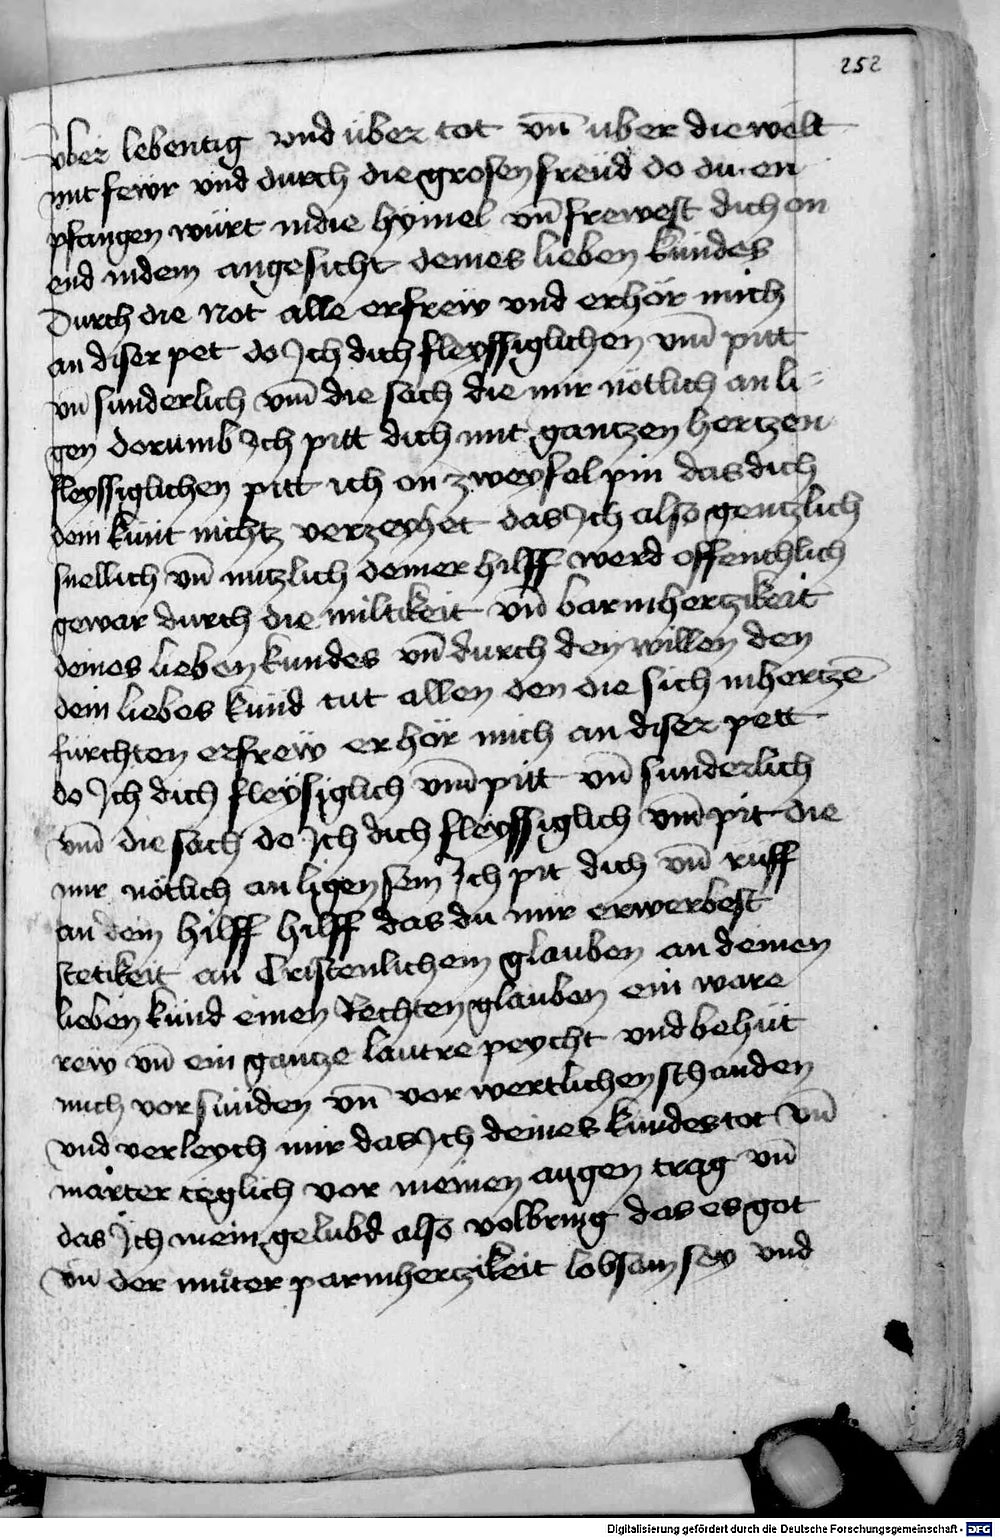 252
vber lebentig vnd über tot vn̄ uber die welt
mit fewr vnd durch die grosen freüd do du en
pfangen würt in die hymel vn̄ frewest dich on
end in dem angesicht deines lieben kindes
Durch die not alle erfreẅ vnd erhör mich
an diser pet do Jch dich fleyssiglichen vm̄ pitt
vn̄ sunderlich vm̄ die sach die mir nötlich an li-
gen dorumb Jch pitt dich mit gantzen hertzen
fleyssiglichen pitt ich on zweyfel pin das dich
dein kint nichtz verzeyhet das Jch also gentzlich
snellich vn̄ nutzlich deiner hilff werd offenthlich
gewar durch die miltikeit vn̄ barmhertzikeit
deines lieben kindes vn̄ durch den willen den
dein liebes kind tut allen den die sich in hertzē
fürchten erfreẅ erhör mich an diser pett
do Jch dich fleysiglich vm̄ pitt vn̄ sunderlich
vm̄ die sach do Jch dich fleyssiglich vm̄ pit die
mir nötlich an ligen sein Jch pit dich vn̄ ruff
an dein hilff hilff das du mir erwerbest
stetikeit an Cristenlichem glauben an deinen
lieben kind einen Rechten glauben ein ware
reẅ vn̄ ein gantze lautre peycht vnd behüt
mich vor sunden vn̄ vor wertlichen schanden
vnd verleych mir das Jch deines kindes tot vn̄
marter teglich vor meinen augen trag vn̄
das Jch mein gelubd also volbring das es got
vn̄ der muter parmhertzikeit lobsam sey vnd
Digitalisierung gefördert durch die Deutsche Forschungsgemeinschaft - DFG